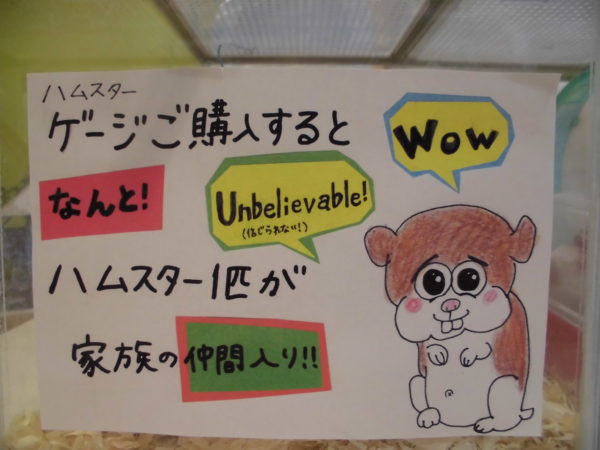 ハムスター
ゲージご購入すると
Wow
なんと!
Unbelievable!
(信じられない!)
ハムスター1匹が
家族の仲間入り!!